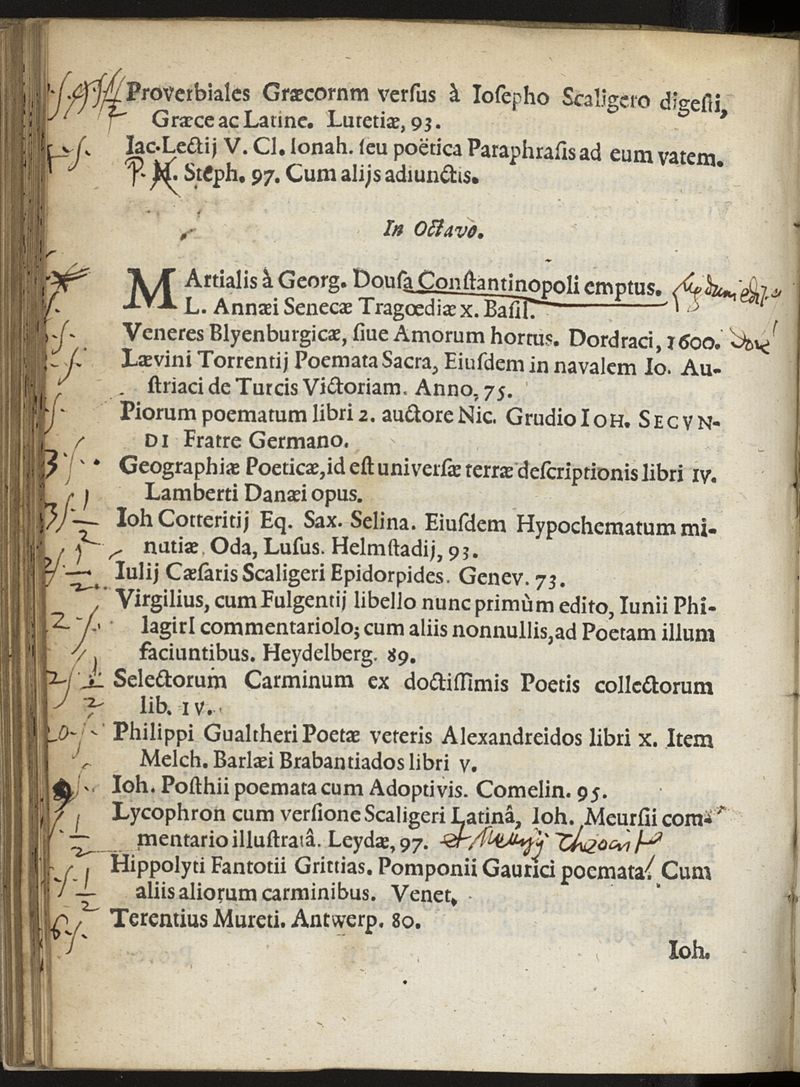 Proverbiales Græcornm verſus à Ioſepho Scaligero digeſti,
Græce ac Latine. Lutetiæ, 93.
Iac. Lectij V. Cl. Ionah. ſeu poëtica Paraphraſis ad eum vatem.
P. M. Steph. 97. Cum alijs adiunctis.
In Octavo.
MArtialis à Georg. Douſa Conſtantinopoli emptus.
L. Annæi Senecæ Tragœdiæ x. Baſil.
Veneres Blyenburgicæ, ſiue Amorum hortus. Dordraci, 1600.
Lævini Torrentij Poemata Sacra, Eiuſdem in navalem Io. Au-
ſtriaci de Turcis Victoriam. Anno, 75.
Piorum poematum libri 2. auctore Nic. Grudio IOH. SECVN-
DI Fratre Germano.
Geographiæ Poeticæ, id eſt univerſæ terræ deſcriptionis libri IV.
Lamberti Danæi opus.
Ioh Cotteritij Eq. Sax. Selina. Eiuſdem Hypochematum mi-
nutiæ, Oda, Luſus. Helmſtadij, 93.
Iulij Cæſaris Scaligeri Epidorpides. Genev. 73.
Virgilius, cum Fulgentij libello nunc primùm edito, Iunii Phi-
lagirI commentariolo; cum aliis nonnullis, ad Poetam illum
faciuntibus. Heydelberg. 89.
Selectorum Carminum ex doctiſſimis Poetis collectorum
lib. IV.
Philippi Gualtheri Poetæ veteris Alexandreidos libri x. Item
Melch. Barlæi Brabantiados libri v.
Ioh. Poſthii poemata cum Adoptivis. Comelin. 95.
Lycophron cum verſione Scaligeri Latinâ, Ioh. Meurſii com-
mentario illuſtratâ. Leydæ, 97.
Hippolyti Fantotii Grittias. Pomponii Gaurici poemata. Cum
aliis aliorum carminibus. Venet,
Terentius Mureti. Antwerp. 80.
Ioh.